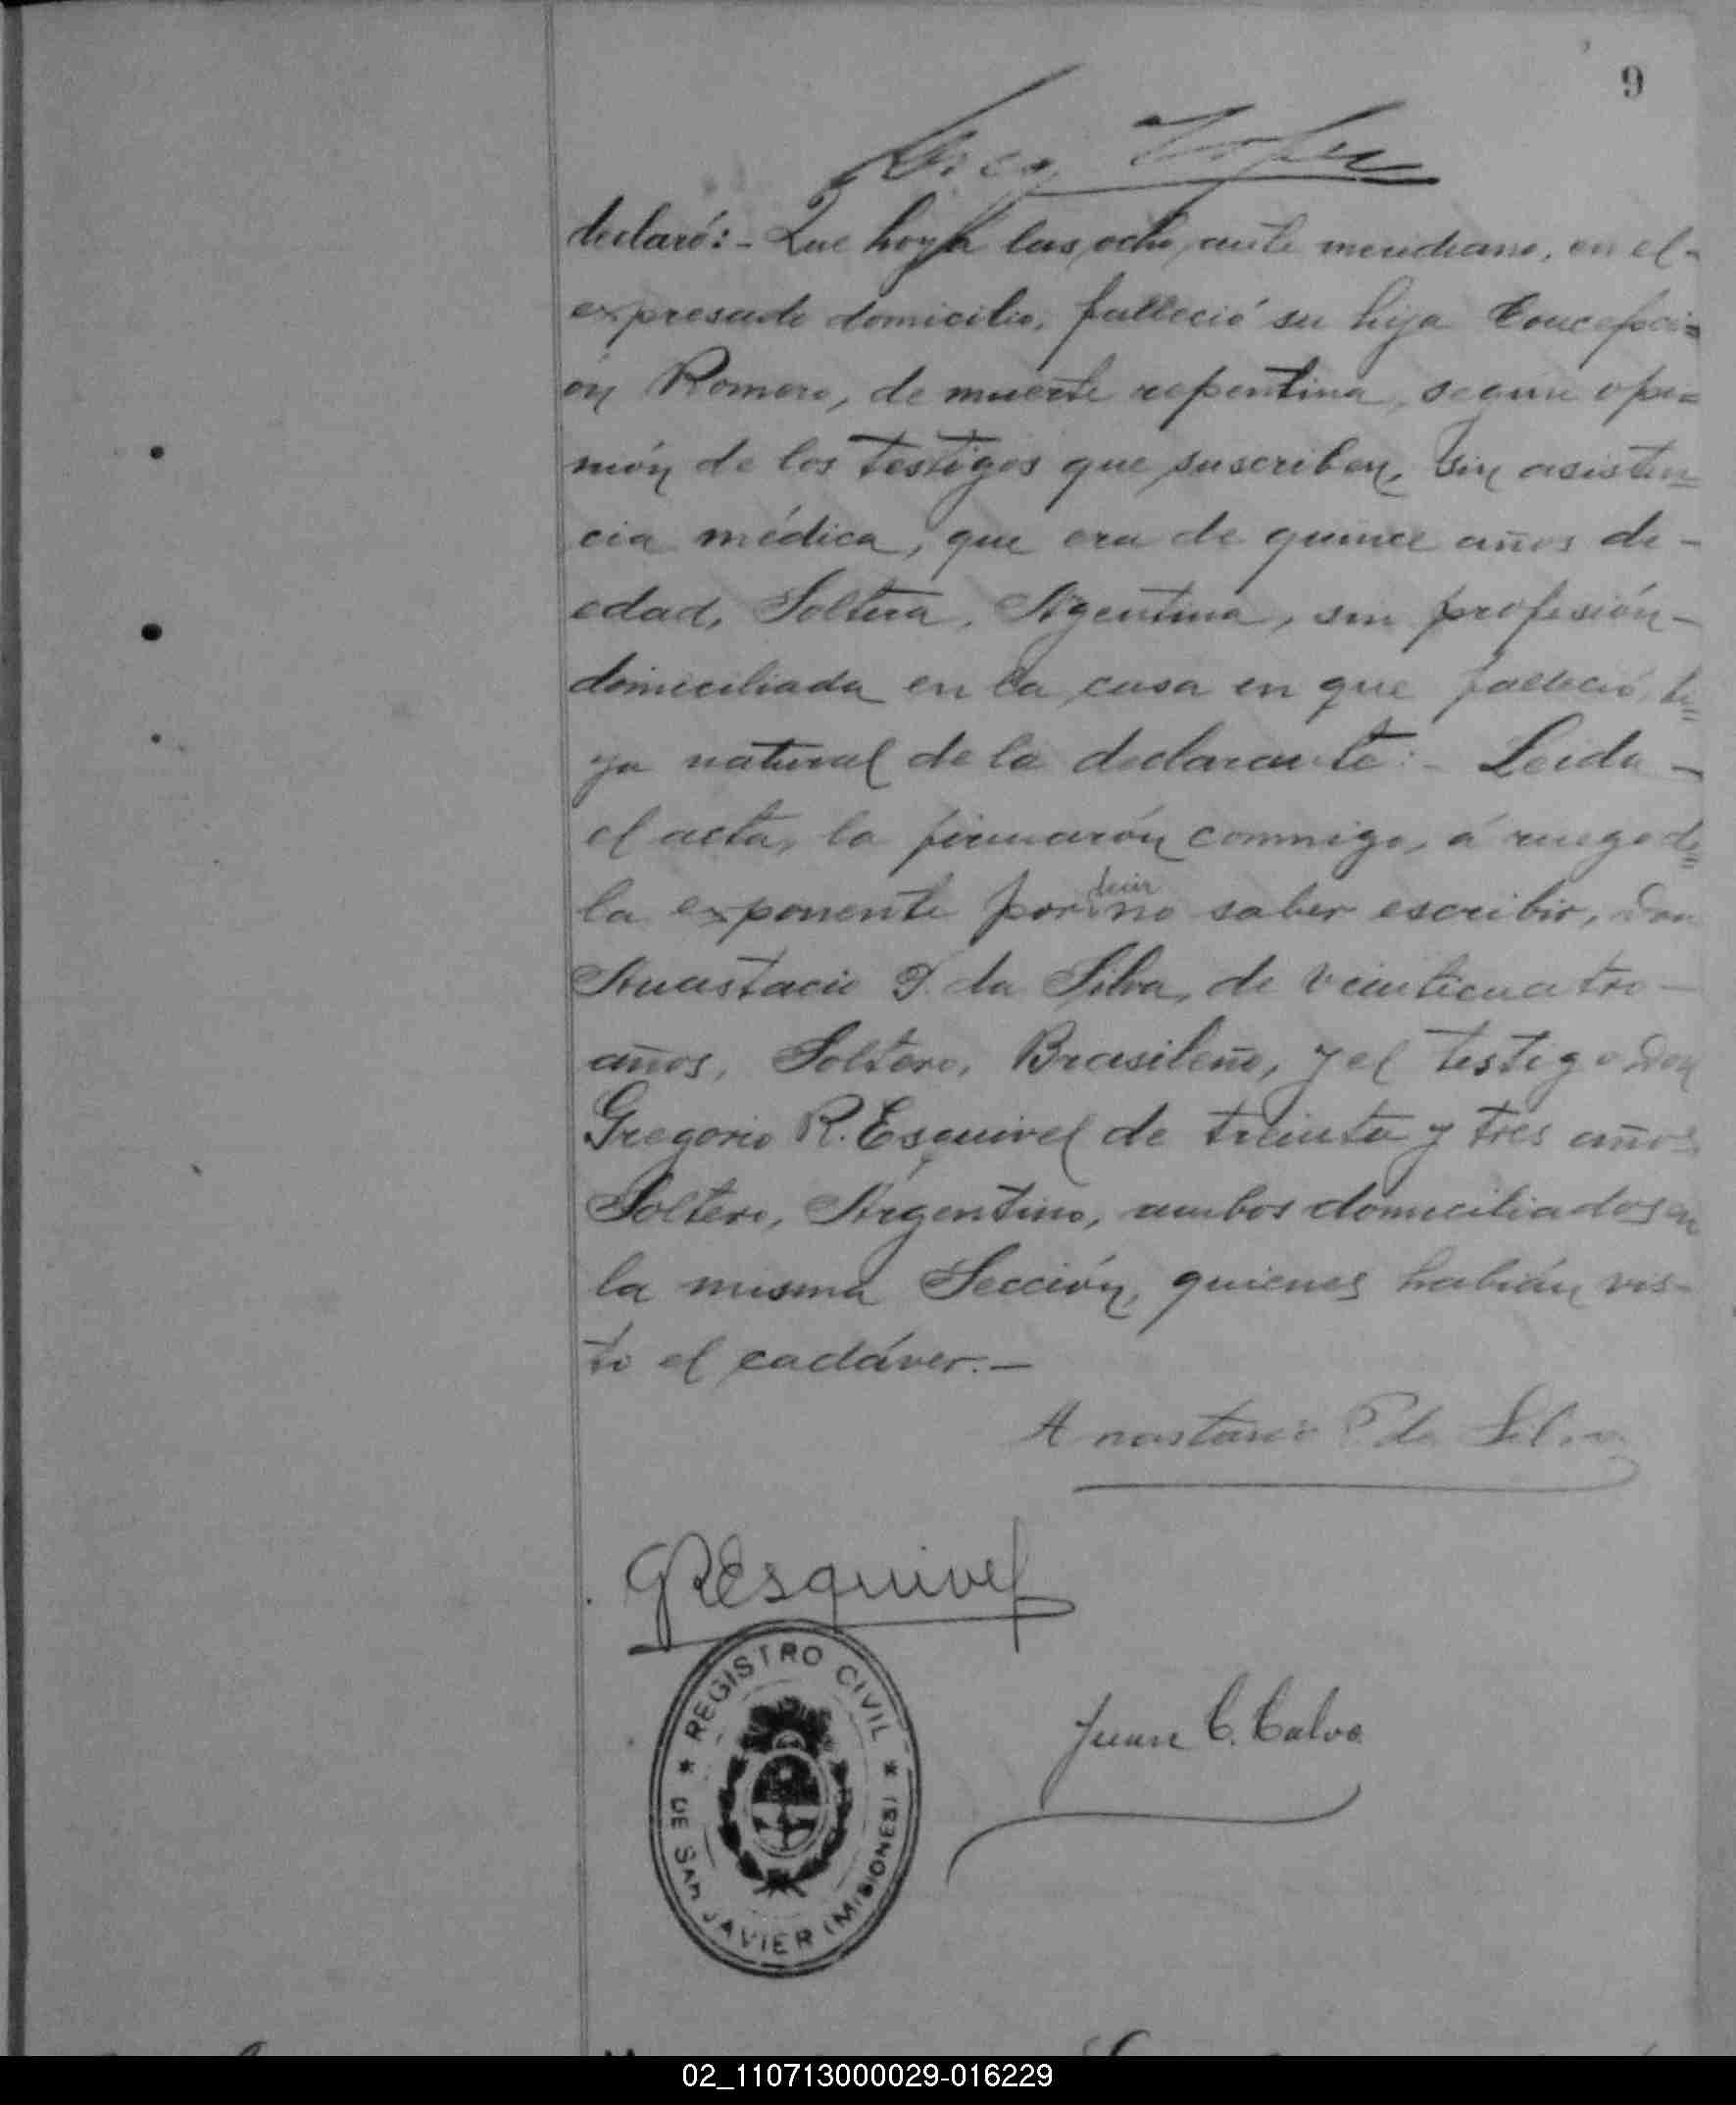 9
declaró:- Que hoy á las ocho ante meridiano, en el-
expresado domicilio, falleció su hija Concepci=
ón Romero, de muerte repentina, segun opi=
nión de los testigos que suscriben, sin asisten=
cia médica, que era de quince años de-
edad, Soltera, Argentina, sin profesión-
domiciliada en la casa en que falleció, hi=
ja natural de la declarante:- Leida-
el acta, la firmarón conmigo, á ruego de=
la exponente por decir no saber escribir, Don
Anastacio P. da Silva, de veinticuatro-
años, Soltero, Brasileño, y el testigo Don
Gregorio R. Esquivel de treinta y tres años
Soltero, Argentino, ambos domiciliados en
la misma Sección, quienes habián vis-
to el cadáver.-
Anastacio P da Silva
GREsquivel
REGISTRO CIVIL
* DE SAN JAVIER (MISIONES) *
Juan C. Calvo
02_110713000029-016229